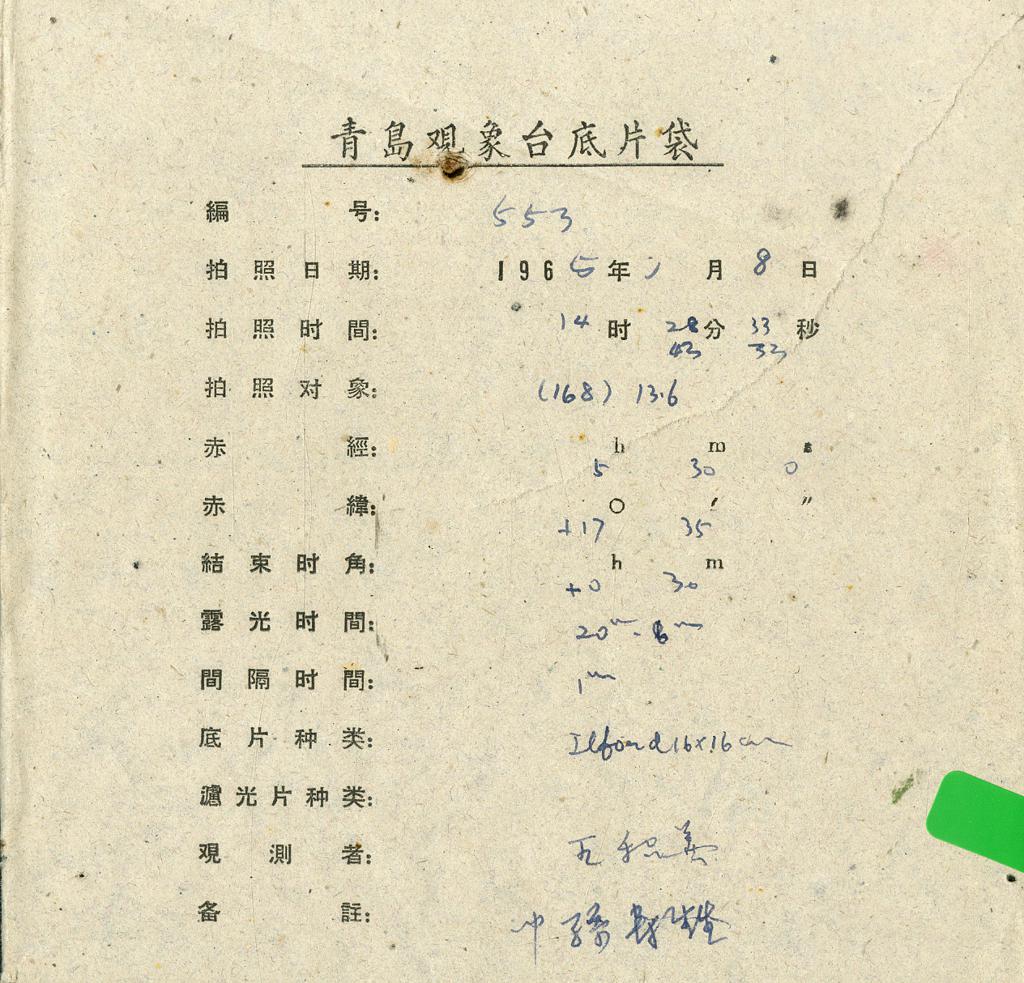 青島观象台底片袋
編号: 553
拍照日期: 1965年1月8日
拍照时間: 14时28分33秒
43 33
拍照对象: (168) 13.6
赤經: h m s
5 30 0
赤緯: ○ ′ ″
+17 35
結束时角: h m
+0 30
露光时間: 20m - 8m
間隔时間: 1m
底片种类: Ilford 16×16 cm
濾光片种类:
观測者:
备註: